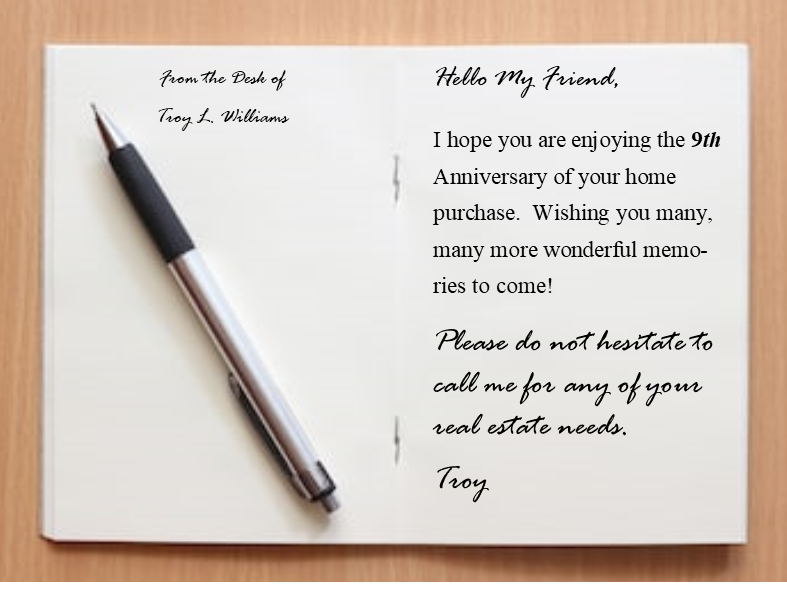 From the Desk of
Troy L. Williams
Hello My Friend,
I hope you are enjoying the 9th
Anniversary of your home
purchase.  Wishing you many,
many more wonderful memo-
ries to come!
Please do not hesitate to
call me for any of your
real estate needs.
Troy